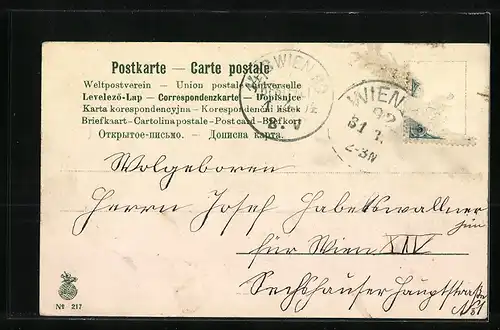 Postkarte — Carte postale
Weltpostverein — Union postale universelle
Levelező-Lap — Correspondenzkarte — Dopisnice
Karta korespondencyjna — Korespondenční lístek
Briefkaart - Cartolina postale - Post card - Brefkort
Открытое-письмо. — Дописна карта.
WIEN
8. V
WIEN
92
31 3.
2-3N
Wolgeboren
Herrn Josef Habetswallner
jun
für Wien XIV
Sechshauser Hauptstraße
No
No 217